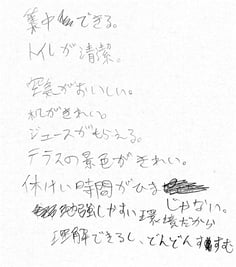 集中できる。
トイレが清潔。
空気がおいしい。
机がきれい。
ジュースがもらえる。
テラスの景色がきれい。
休けい時間がひま じゃない。
勉強しやすい環境だから
理解できるし、どんどんすすむ